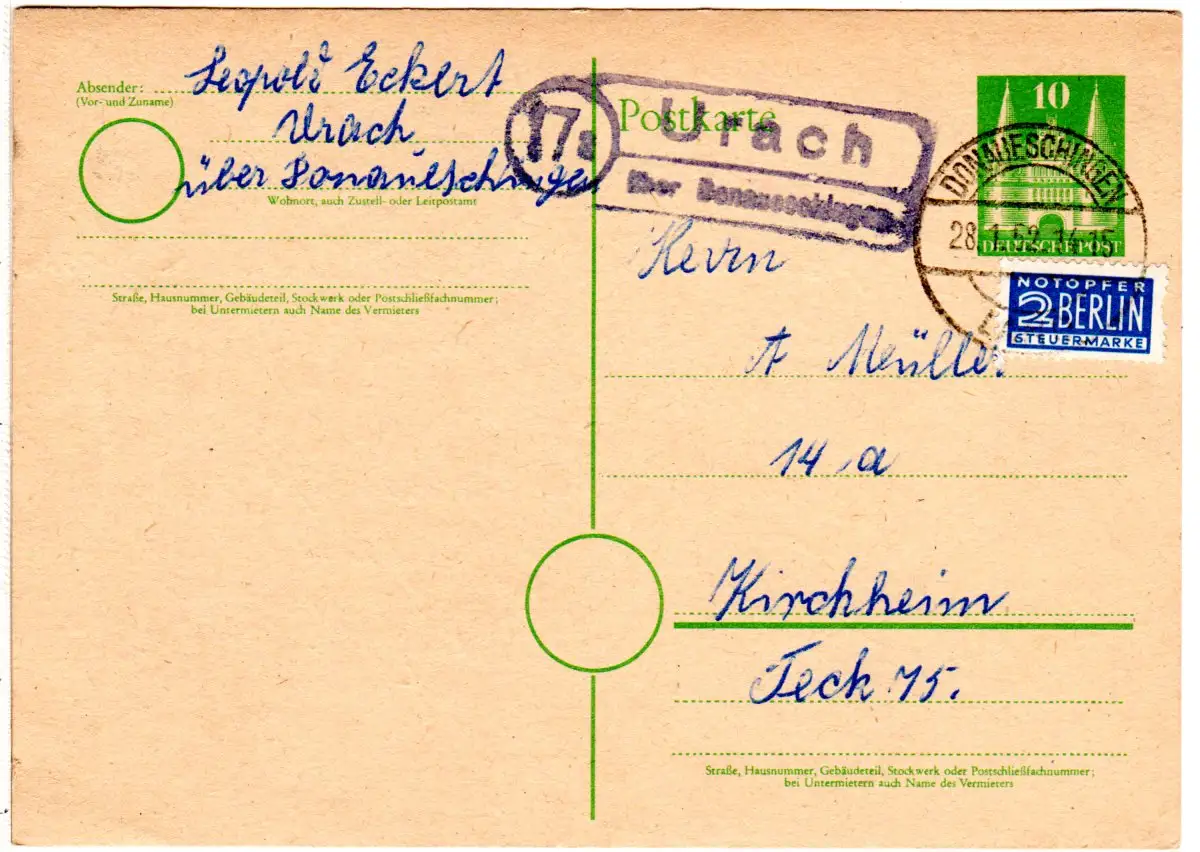 Absender: Leopold Eckert
(Vor- und Zuname)
Urach
über Donaueschingen
Wohnort, auch Zustell- oder Leitpostamt
Straße, Hausnummer, Gebäudeteil, Stockwerk oder Postschließfachnummer;
bei Untermietern auch Name des Vermieters
Postkarte
17a
Urach
über Donaueschingen
10
DEUTSCHE POST
DONAUESCHINGEN
28.1.52.14-15
NOTOPFER
2 BERLIN
STEUERMARKE
Herrn
A Meüller
14 a
Kirchheim
Teck 75.
Straße, Hausnummer, Gebäudeteil, Stockwerk oder Postschließfachnummer;
bei Untermietern auch Name des Vermieters